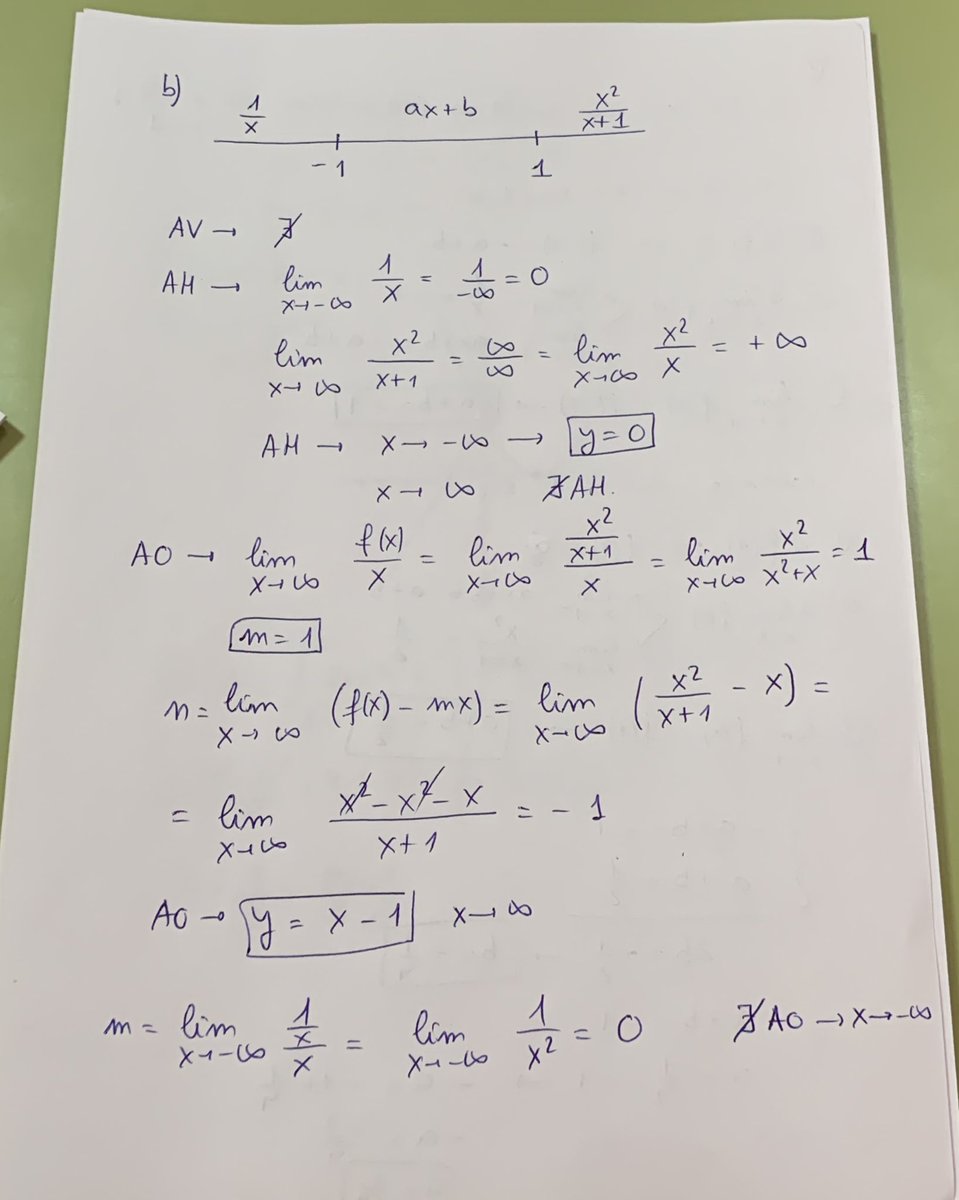 b)
1/x ax+b x²/(x+1)
-1 1
AV → ∄
AH → lim x→-∞ 1/x = 1/-∞ = 0
lim x→∞ x²/(x+1) = ∞/∞ = lim x→∞ x²/x = +∞
AH → x→ -∞ → y=0
x→ ∞ ∄ AH.
AO → lim x→∞ f(x)/x = lim x→∞ (x²/(x+1))/x = lim x→∞ x²/(x²+x) = 1
m = 1
n = lim x→∞ (f(x) - mx) = lim x→∞ (x²/(x+1) - x) =
= lim x→∞ (x² - x² - x)/(x+1) = -1
AO → y = x - 1 x→∞
m = lim x→-∞ (1/x)/x = lim x→-∞ 1/x² = 0 ∄ AO → x→-∞